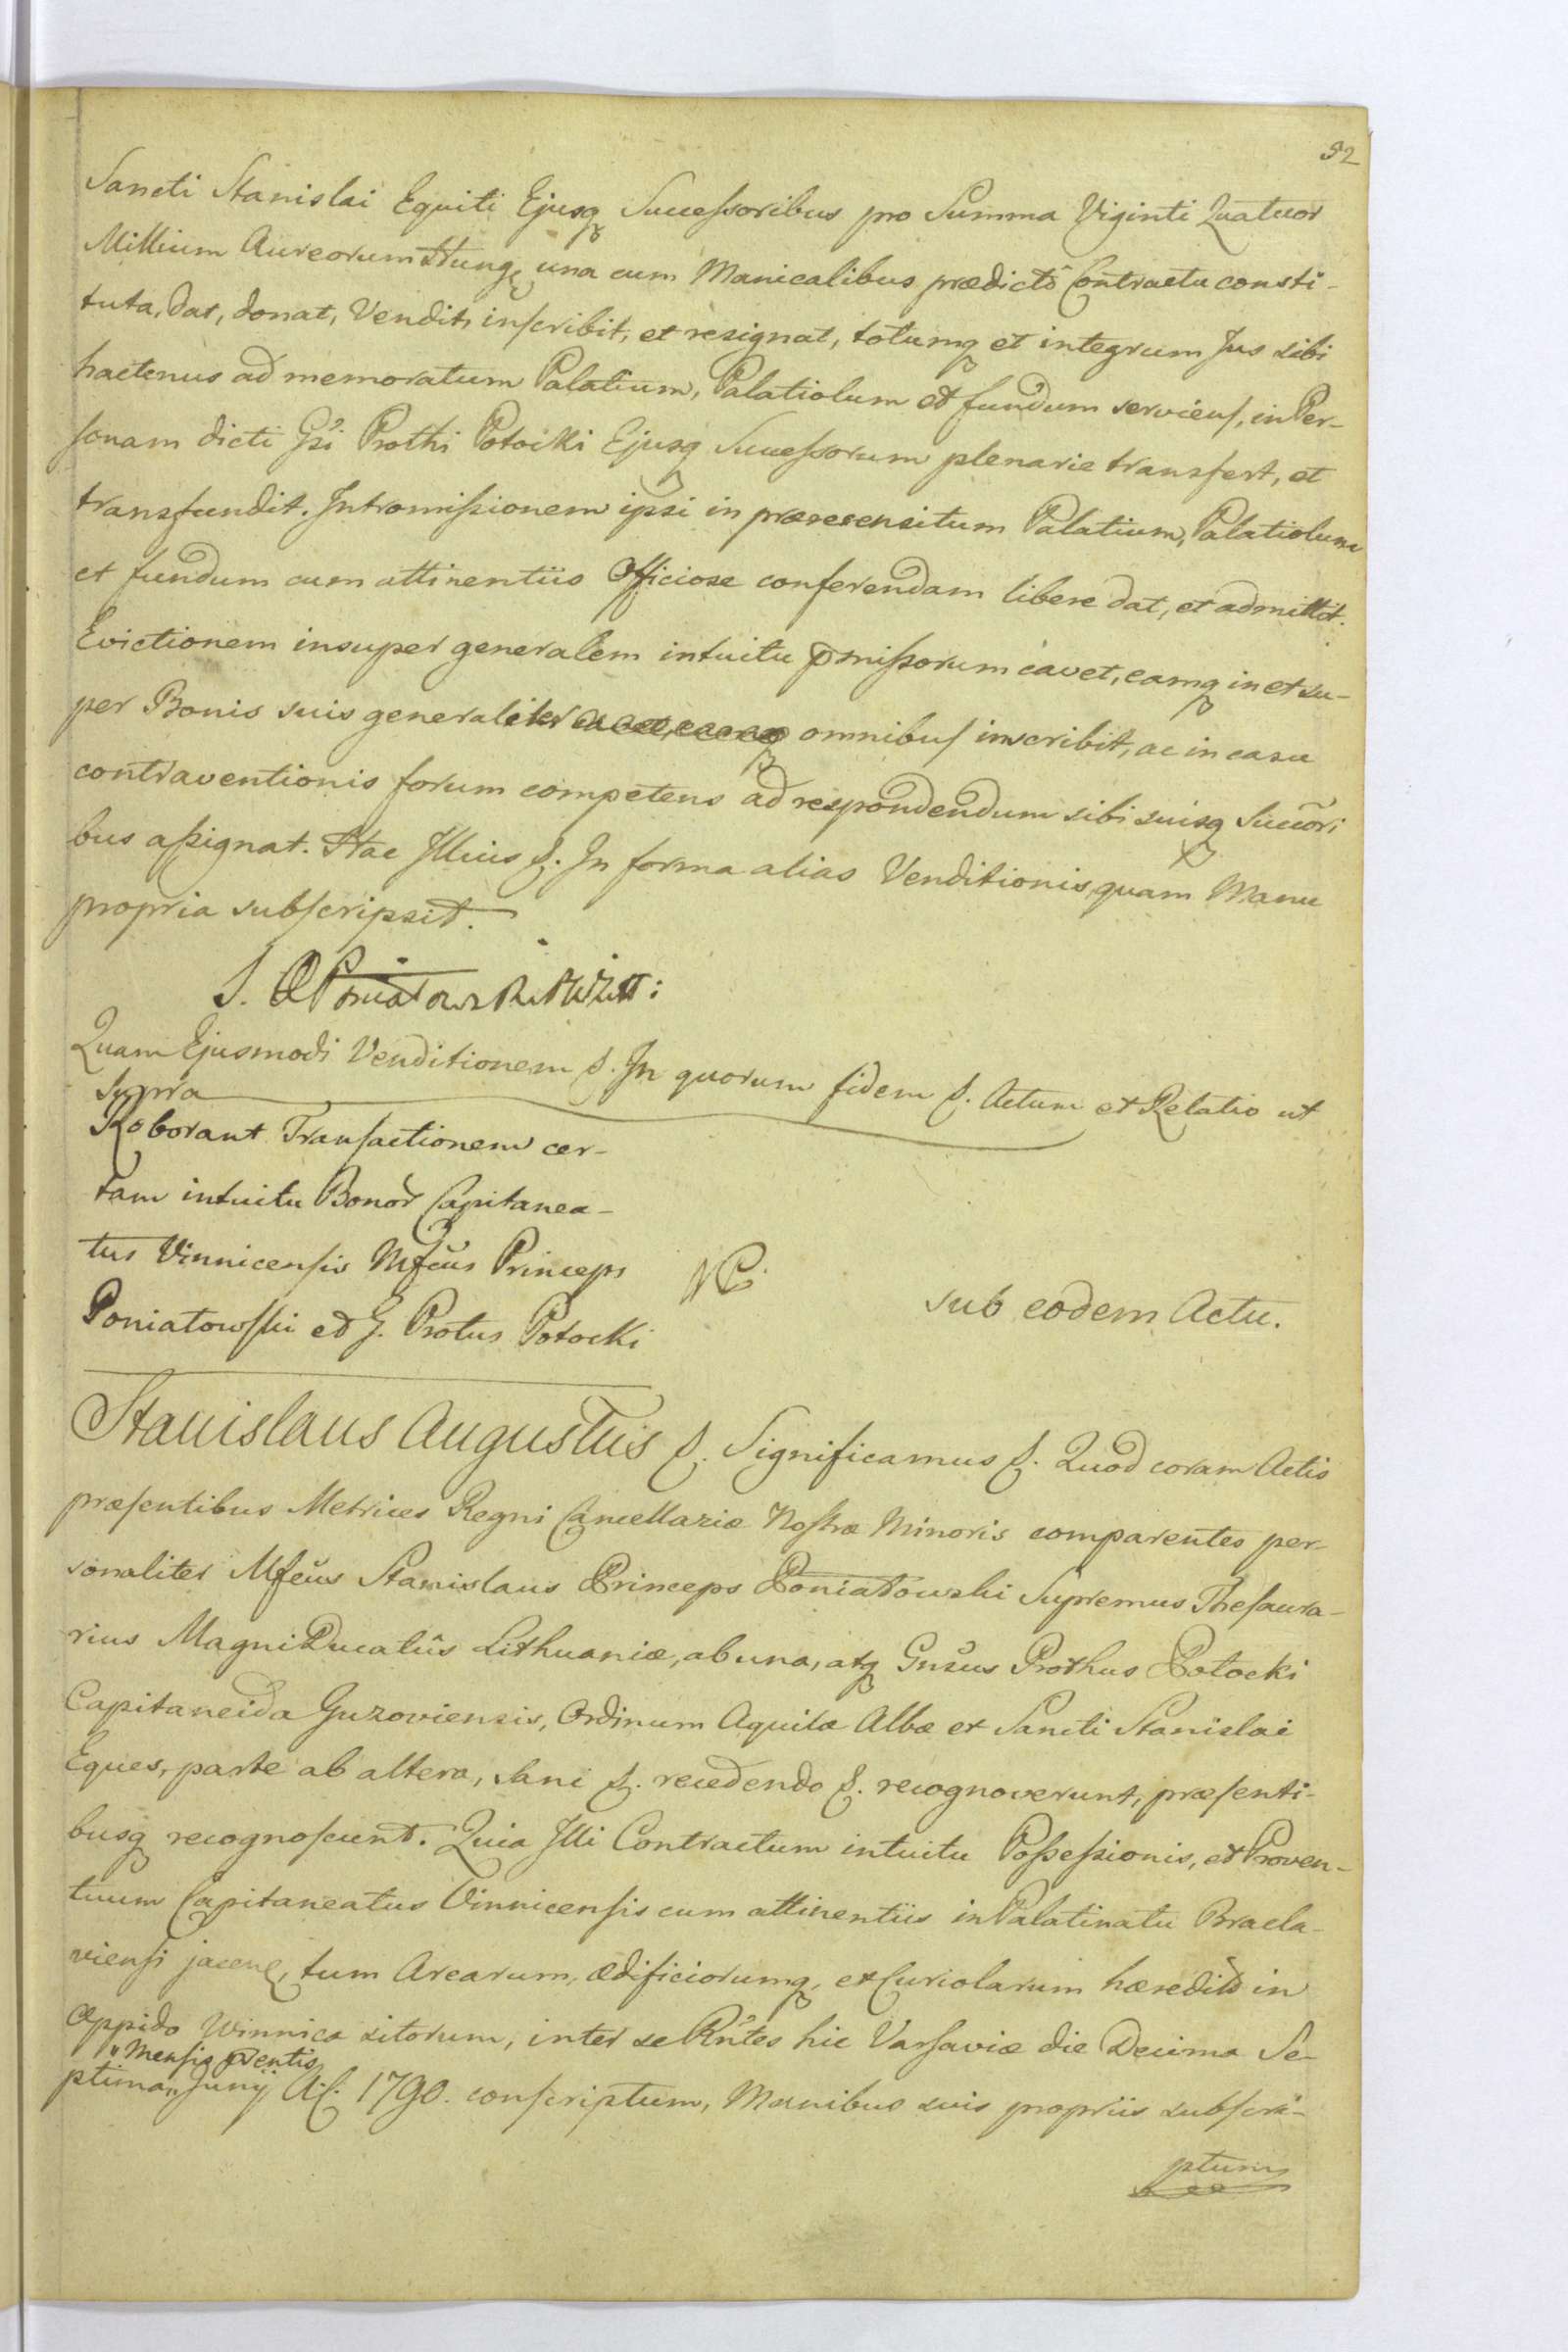 52
Sancti Stanislai Equiti Ejusq Successoribus pro Summa Viginti Quatuor
Millium Aureorum Hung, una cum Manicalibus prædictô Contractu consti-
tuta, dat, donat, Vendit, inscribit, et resignat, totumq et integrum Jus sibi
hactenus ad memoratum Palatium, Palatiolum et fundum serviens, in Per-
sonam dicti Gsi Prothi Potocki Ejusq Successorum plenarie transfert, et
transfundit. Intromissionem ipsi in prærecensitum Palatium, Palatiolum
et fundum cum attinentiis Officiose conferendam libere dat, et admittit.
Evictionem insuper generalem intuitu pmissorum cavet, eamq in et su-
per Bonis suis generaliter omnibus inscribit, ac in casu
contraventionis forum competens ad respondendum sibi suisq Succõri
bus assignat. Hac Illius S. In forma alias Venditionis, quam Manu
propria subscripsit.
S. Poniatowski
Quam Ejusmodi Venditionem S. In quorum fidem S. Actum et Relatio ut
supra
Roborant Transactionem cer-
tam intuitu Bonor Capitanea-
tus Vinnicensis Mfcus Princeps
Poniatowski et G. Protus Potocki
sub eodem Actu.
Stanislaus Augustus S. Significamus S. Quod coram Actis
præsentibus Metrices Regni Cancellariæ Nostræ Minoris comparentes per-
sonaliter Mfcus Stanislaus Princeps Poniatowski Supremus Thesaura-
rius Magni Ducatûs Lithuaniæ, ab una, atq Gnsus Prothus Potocki
Capitaneida Guzoviensis, Ordinum Aquilæ Albæ et Sancti Stanislai
Eques, parte ab altera, Sani S. recedendo S. recognoverunt, præsenti-
busq recognoscunt. Quia Illi Contractum intuitu Possessionis, et Proven-
tuum Capitaneatus Vinnicensis cum attinentiis in Palatinatu Bracla-
viensi jacen, tum Arearum, ædificiorumq, et Curiolarum hæredit in
Oppido Winnica sitorum, inter se Rñtes hic Varsaviæ die Decima Se-
mensis pñtis
ptima Junij A. 1790. conscriptum, Manibus suis propriis subscri-
ptum